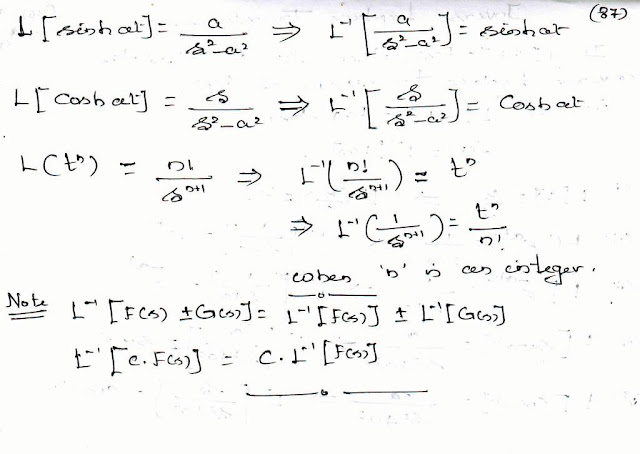 (87)
L[sinh at] = a/(s²-a²) ⇒ L⁻¹[a/(s²-a²)] = sinh at
L[cosh at] = s/(s²-a²) ⇒ L⁻¹[s/(s²-a²)] = cosh at
L(tⁿ) = n!/sⁿ⁺¹ ⇒ L⁻¹(n!/sⁿ⁺¹) = tⁿ
⇒ L⁻¹(1/sⁿ⁺¹) = tⁿ/n!
when 'n' is an integer.
Note L⁻¹[F(s) ± G(s)] = L⁻¹[F(s)] ± L⁻¹[G(s)]
L⁻¹[c.F(s)] = c. L⁻¹[F(s)]